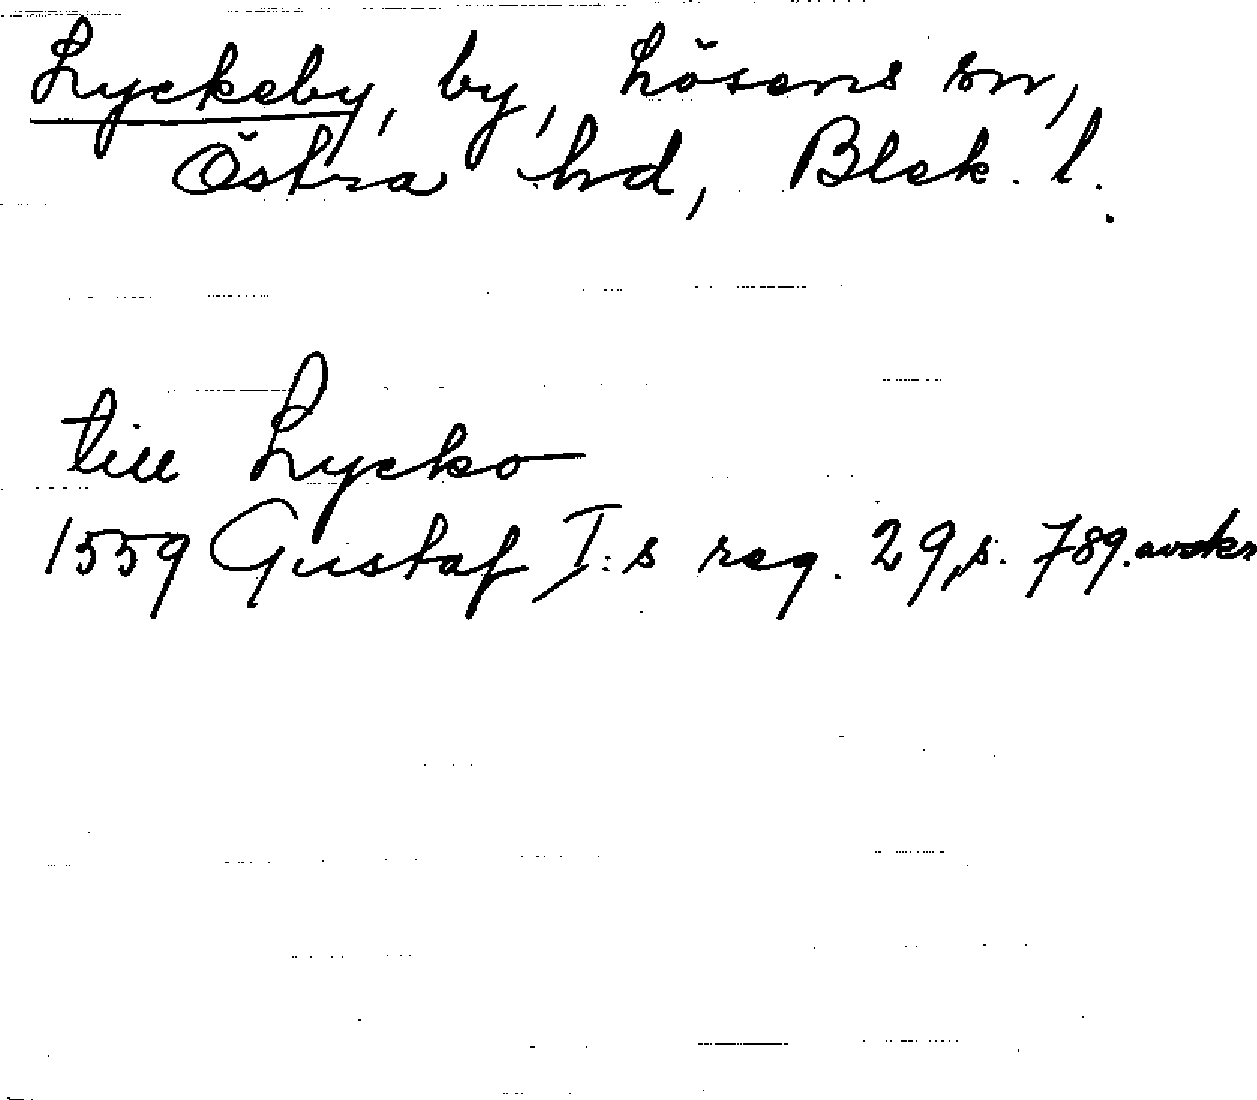 Lyckeby, by, Lösens sn,
Östra hd, Blek. l.
till Lycko
1559 Gustaf I:s reg. 29, s. 789. avskr